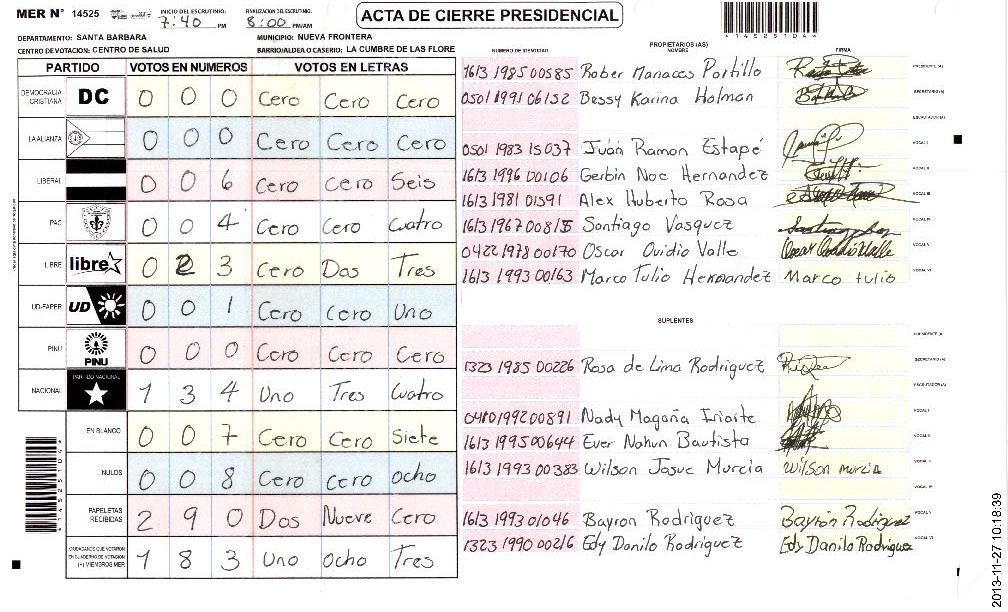 MER N° 14525 INICIO DEL ESCRUTINIO: 7:40 PM FINALIZACION DEL ESCRUTINIO: 8:00 PM/AM
ACTA DE CIERRE PRESIDENCIAL
DEPARTAMENTO: SANTA BARBARA MUNICIPIO: NUEVA FRONTERA
CENTRO DE VOTACION: CENTRO DE SALUD BARRIO/ALDEA O CASERIO: LA CUMBRE DE LAS FLORE
PARTIDO VOTOS EN NUMEROS VOTOS EN LETRAS
DEMOCRACIA CRISTIANA DC 0 0 0 Cero Cero Cero
LA ALIANZA 0 0 0 Cero Cero Cero
LIBERAL 0 0 6 Cero Cero Seis
PAC 0 0 4 Cero Cero Cuatro
LIBRE libre 0 2 3 Cero Dos Tres
UD-FAPER UD 0 0 1 Cero Cero Uno
PINU PINU 0 0 0 Cero Cero Cero
NACIONAL PARTIDO NACIONAL 1 3 4 Uno Tres Cuatro
EN BLANCO 0 0 7 Cero Cero Siete
NULOS 0 0 8 Cero Cero Ocho
PAPELETAS RECIBIDAS 2 9 0 Dos Nueve Cero
CIUDADANOS QUE VOTARON EN CUADERNO DE VOTACION (+) MIEMBROS MER 1 8 3 Uno Ocho Tres
PROPIETARIOS (AS)
NUMERO DE IDENTIDAD NOMBRE FIRMA
1613 1985 00585 Rober Manaces Portillo PRESIDENTE (A)
0501 1991 06152 Bessy Karina Holman SECRETARIO (A)
ESCRUTADOR (A)
0501 1983 15037 Juan Ramon Estapé VOCAL I
1613 1996 00106 Gerbin Noe Hernandez VOCAL II
1613 1981 01591 Alex Huberto Rosa VOCAL III
1613 1967 00815 Santiago Vasquez VOCAL IV
0422 1978 00170 Oscar Ovidio Valle Oscar Ovidio Valle VOCAL V
1613 1993 00163 Marco Tulio Hernandez Marco tulio VOCAL VI
SUPLENTES
PRESIDENTE (A)
1323 1985 00226 Rosa de Lima Rodriguez SECRETARIO (A)
ESCRUTADOR (A)
0410 1992 00891 Nady Magaña Iriarte VOCAL I
1613 1995 00644 Ever Nahun Bautista VOCAL II
1613 1993 00383 Wilson Josue Murcia Wilson murcia VOCAL III
VOCAL IV
1613 1993 01046 Bayron Rodriguez Bayron Rodriguez VOCAL V
1323 1990 00216 Edy Danilo Rodriguez Edy Danilo Rodriguez VOCAL VI
2013-11-27 10:18:39